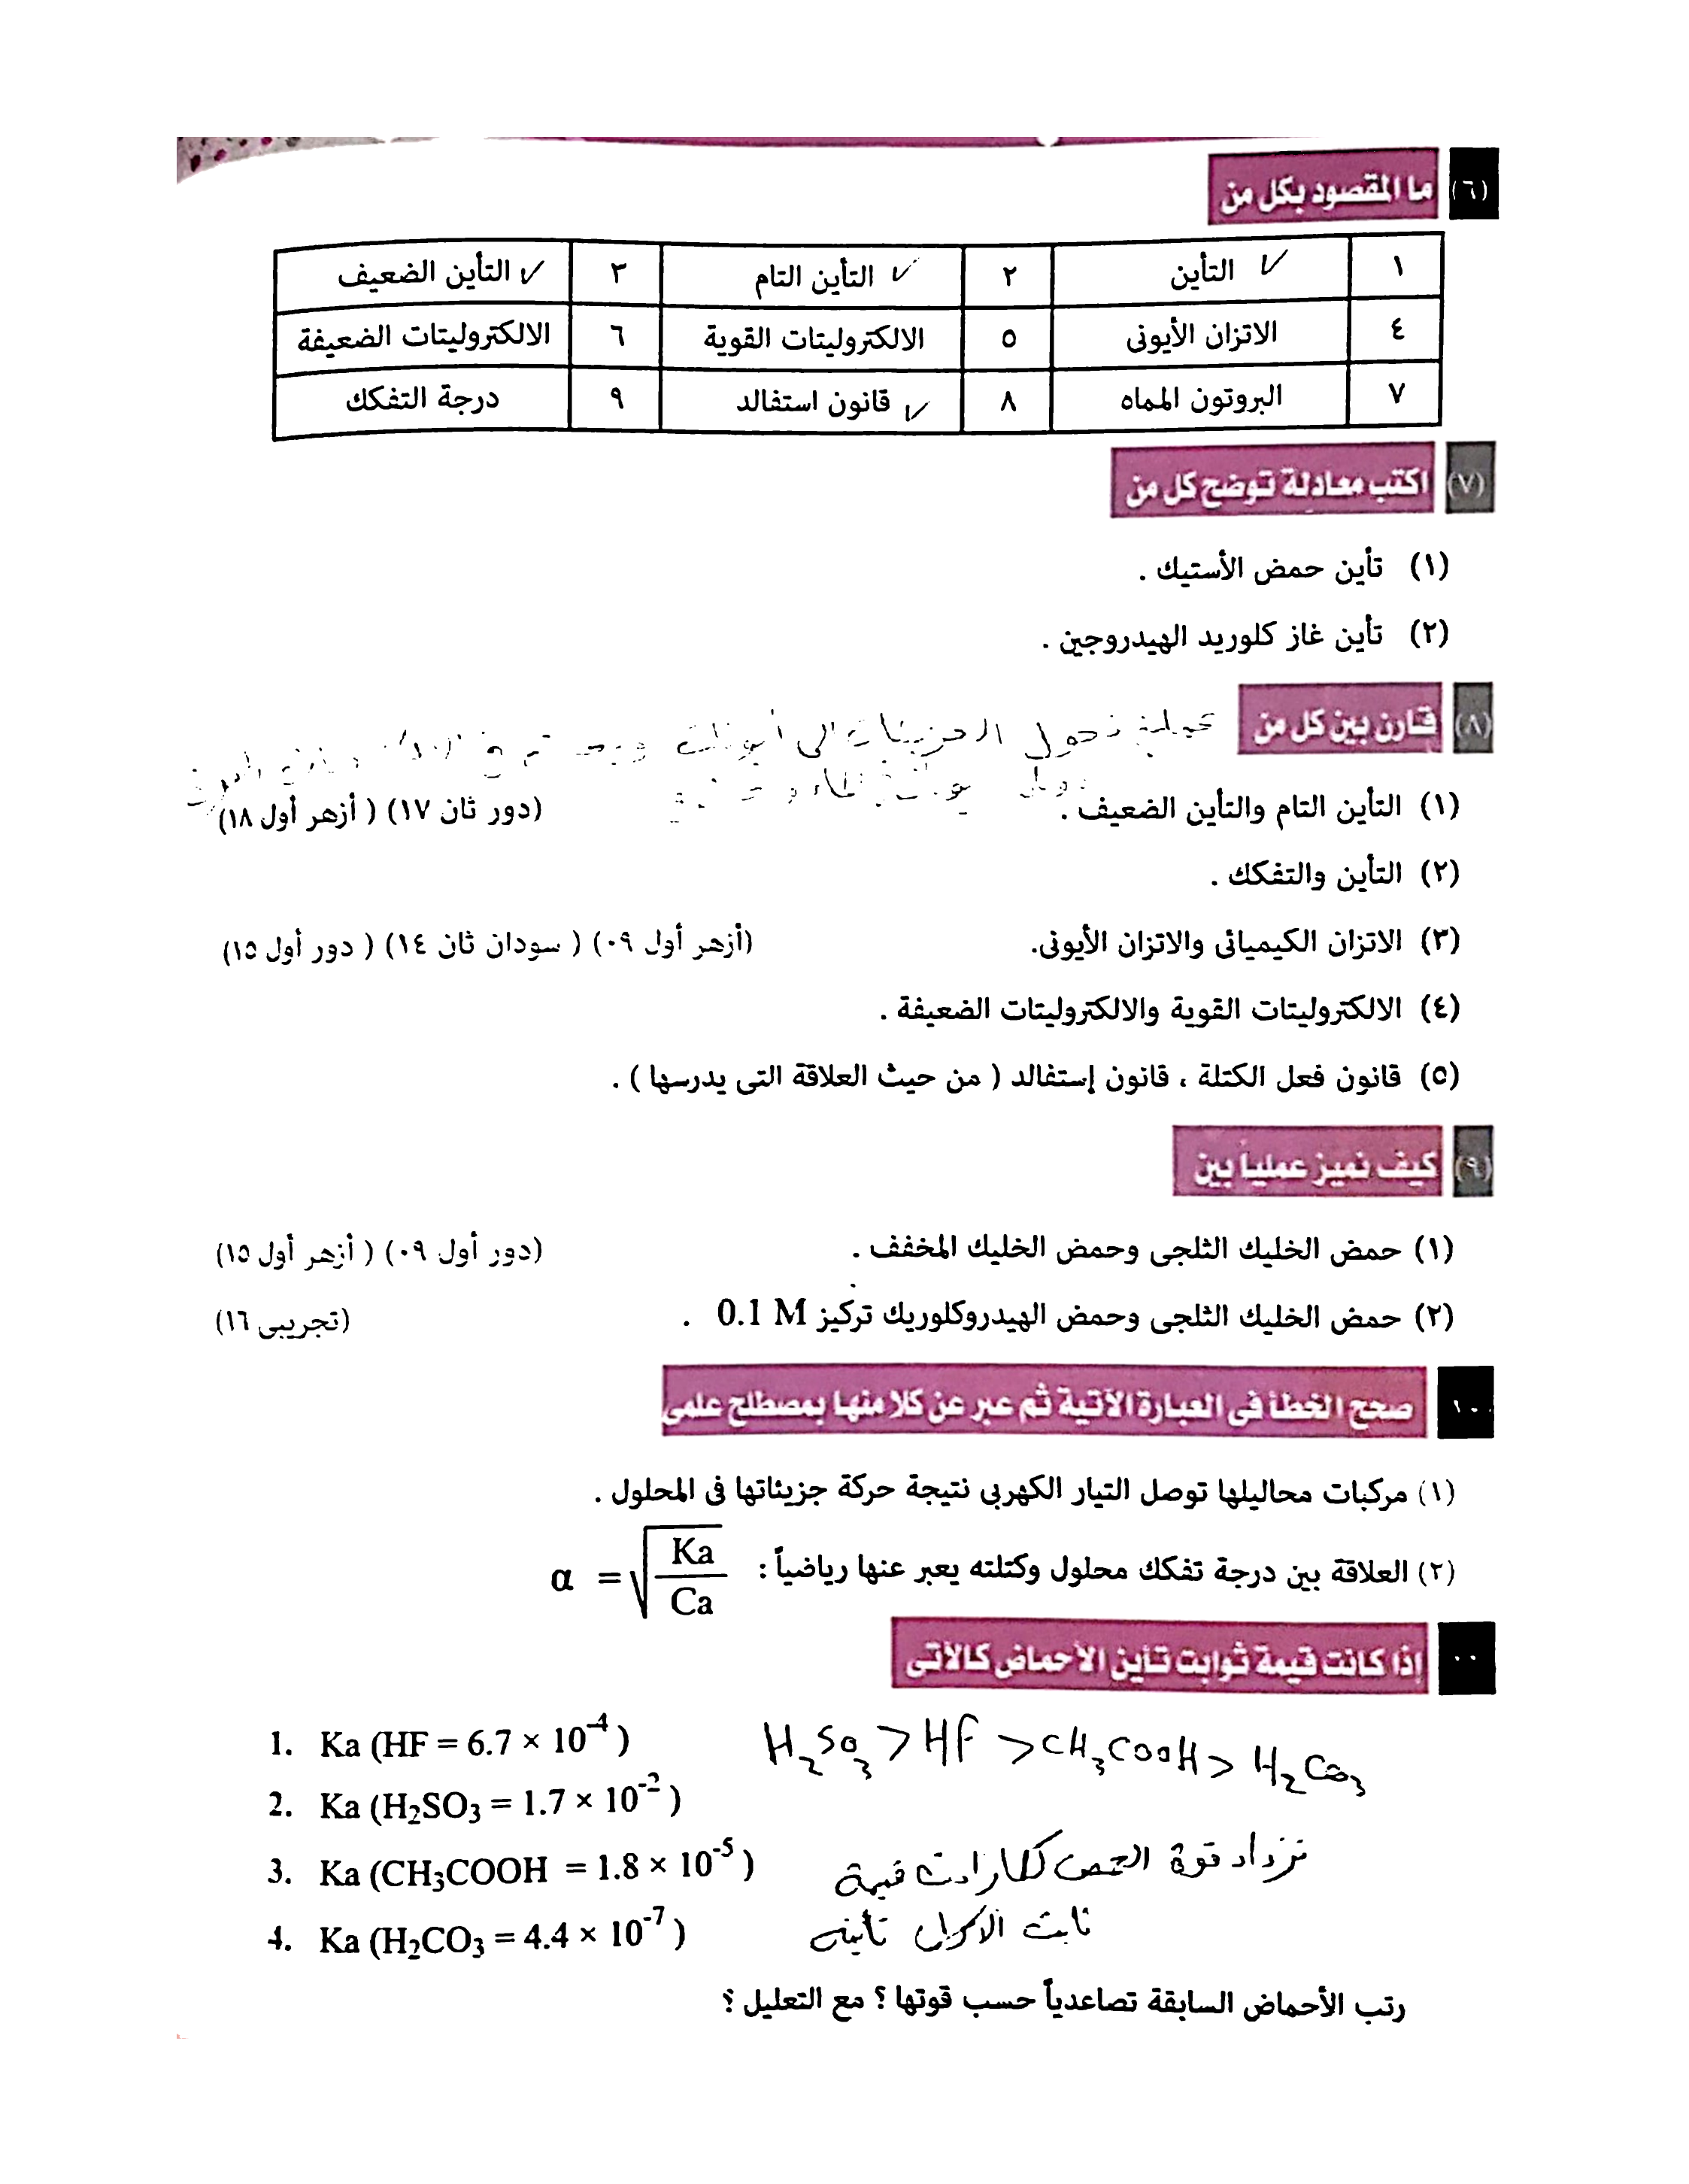 (٦) ما المقصود بكل من
١ التأين ✓ ٢ التأين التام ✓ ٣ التأين الضعيف ✓
٤ الاتزان الأيونى ٥ الالكتروليتات القوية ٦ الالكتروليتات الضعيفة
٧ البروتون المماه ٨ قانون استفالد ✓ ٩ درجة التفكك
(٧) اكتب معادلة توضح كل من
(١) تأين حمض الأستيك .
(٢) تأين غاز كلوريد الهيدروجين .
(٨) قارن بين كل من
عملية تحول الجزيئات الى أيونات
(١) التأين التام والتأين الضعيف . (دور ثان ١٧) ( أزهر أول ١٨)
(٢) التأين والتفكك .
(٣) الاتزان الكيميائى والاتزان الأيونى. (أزهر أول ٠٩) ( سودان ثان ١٤) ( دور أول ١٥)
(٤) الالكتروليتات القوية والالكتروليتات الضعيفة .
(٥) قانون فعل الكتلة ، قانون إستفالد ( من حيث العلاقة التى يدرسها ) .
(٩) كيف نميز عملياً بين
(١) حمض الخليك الثلجى وحمض الخليك المخفف . (دور أول ٠٩) ( أزهر أول ١٥)
(٢) حمض الخليك الثلجى وحمض الهيدروكلوريك تركيز 0.1 M . (تجريبى ١٦)
١٠ صحح الخطأ فى العبارة الآتية ثم عبر عن كلا منها بمصطلح علمى
(١) مركبات محاليلها توصل التيار الكهربي نتيجة حركة جزيئاتها فى المحلول .
(٢) العلاقة بين درجة تفكك محلول وكتلته يعبر عنها رياضياً : α = √(Ka/Ca)
إذا كانت قيمة ثوابت تأين الأحماض كالآتى
1. Ka (HF = 6.7 × 10⁻⁴ )
H₂SO₃ > HF > CH₃COOH > H₂CO₃
2. Ka (H₂SO₃ = 1.7 × 10⁻² )
3. Ka (CH₃COOH = 1.8 × 10⁻⁵ )
تزداد قوة الحمض كلما زادت قيمة
4. Ka (H₂CO₃ = 4.4 × 10⁻⁷ )
ثابت تأينه
رتب الأحماض السابقة تصاعدياً حسب قوتها ؟ مع التعليل ؟